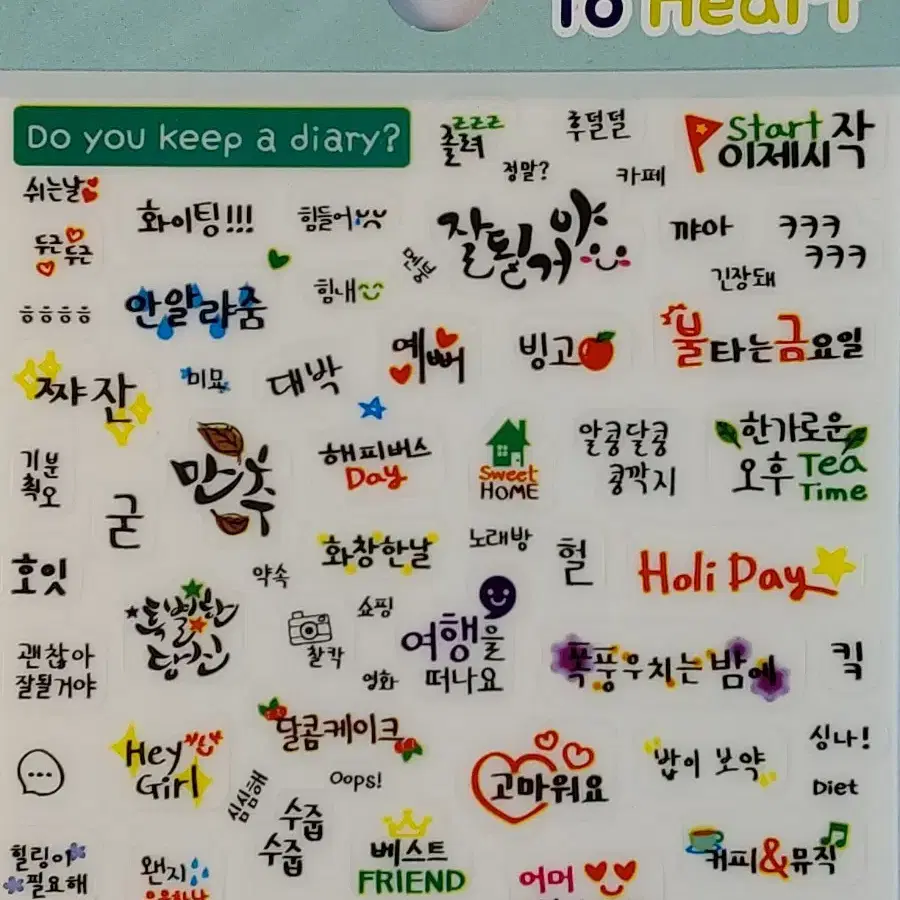 To Heart
Do you keep a diary?
zzz
졸려
후덜덜
Start 작
이제시
정말?
카페
쉬는날
화이팅!!!
힘들어
잘될거야
꺄아
ㅋㅋㅋ
ㅋㅋㅋ
두근
두근
멘붕
긴장돼
힘내
ㅎㅎㅎㅎ
안알랴줌
예뻐
빙고
불타는금요일
짜잔
미묘
대박
만추
해피버스
Day
Sweet
HOME
알콩달콩
콩깍지
한가로운
오후 Tea
Time
기분
최오
굳
호잇
약속
화창한날
노래방
헐
Holi Day
특별한
당신
찰칵
쇼핑
여행을
떠나요
영화
괜찮아
잘될거야
폭풍우치는 밤에
킥
Hey
Girl
달콤케이크
심심해
Oops!
고마워요
밥이 보약
싱나!
Diet
수줍
수줍
힐링이
필요해
왠지
베스트
FRIEND
어머
커피&뮤직